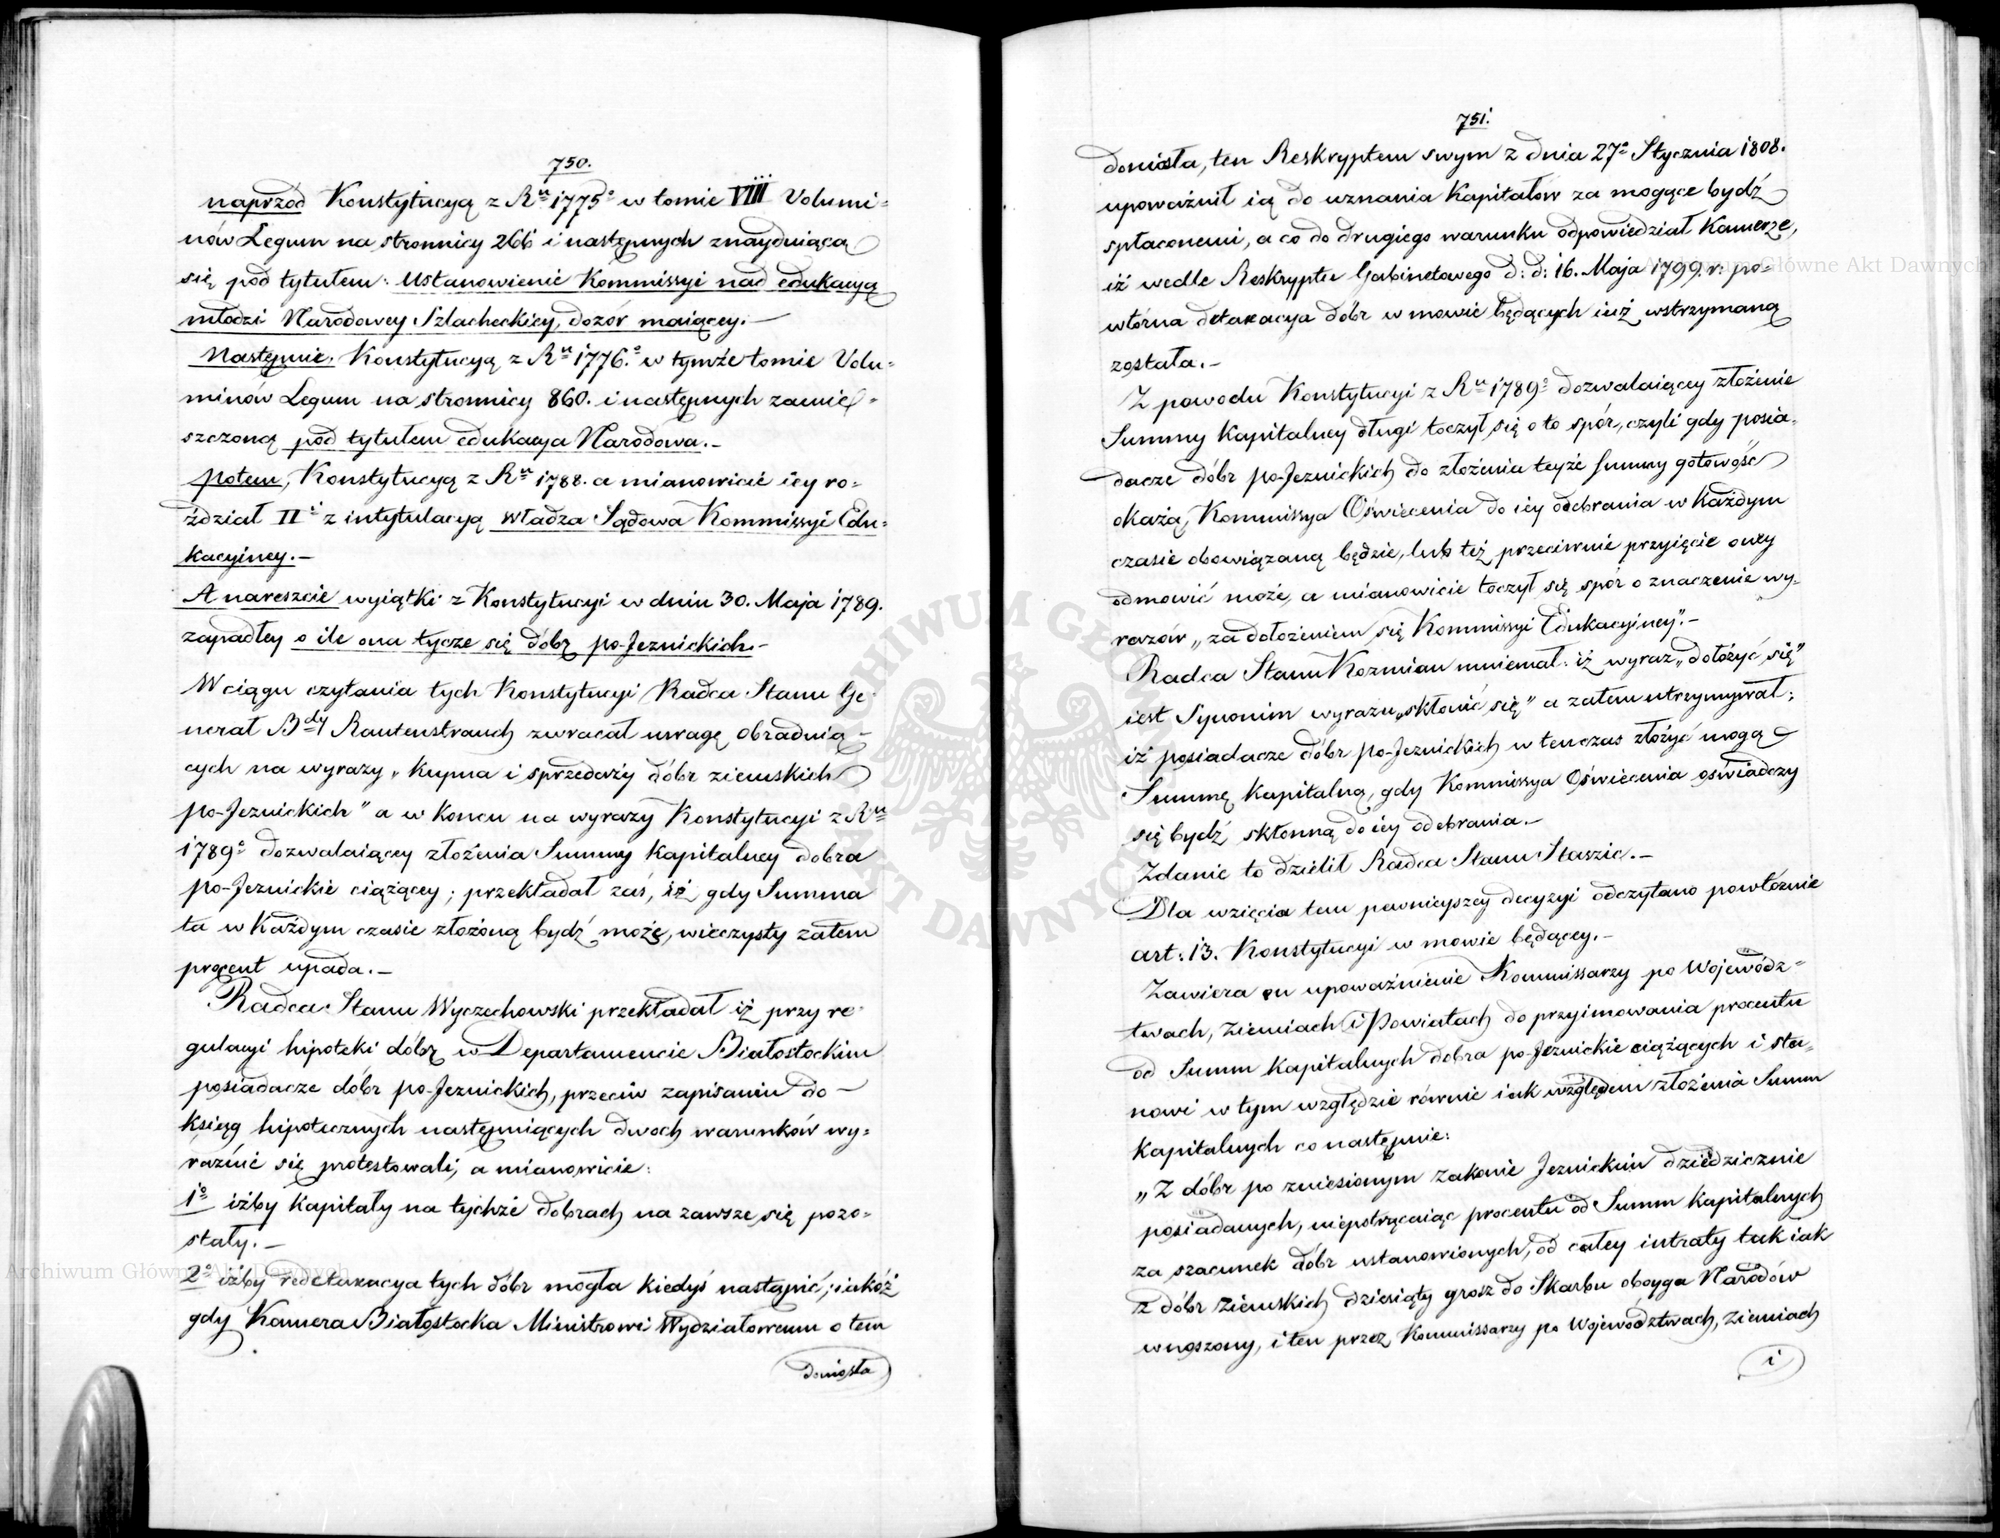 750.
naprzód Konstytucyą z Rn 1775o w tomie VIII Volumi=
nów Legum na stronnicy 266 i następnych znayduiącą
się pod tytułem: Ustanowienie Kommissyi nad edukacyą
młodzi Narodowey Szlacheckiey, dozór maiącey.—
Następnie, Konstytucyą z Rn 1776.o w tymże tomie Volu=
minów Legum na stronnicy 860. i następnych zamie=
szczoną pod tytułem edukacya Narodowa.—
potem, Konstytucyą z Rn 1788. a mianowicie iey ro=
ździał IIi z intytulacyą władza Sądowa Kommissyi Edu=
kacyiney.—
A nareszcie wyiątki z Konstytucyi w dniu 30. Maja 1789.
zapadłey o ile ona tycze się dóbr po-Jezuickich.—
W ciągu czytania tych Konstytucyi Radca Stanu Ge=
nerał Bdy Rautenstrauch zwracał uwagę obraduią=
cych na wyrazy „kupna i sprzedaży dóbr ziemskich
po-Jezuickich” a w końcu na wyrazy Konstytucyi z Rn
1789o dozwalaiącey złożenia Summy kapitalney dobra
po-Jezuickie ciążącey; przekładał zaś, iż gdy Summa
ta w każdym czasie złożoną bydź może, wieczysty zatem
procent upada.—
Radca Stanu Wyczechowski przekładał iż przy re=
gulacyi hipoteki dóbr w Departamencie Białostockim
posiadacze dóbr po-Jezuickich, przeciw zapisaniu do—
ksiąg hipotecznych następuiących dwoch warunków wy=
raźnie się protestowali, a mianowicie:
1o iżby kapitały na tychże dobrach na zawsze się pozo=
stały.—
2o iżby redetaxacya tych dóbr mogła kiedyś nastąpić; iakóż
gdy Kamera Białostocka Ministrowi Wydziałowemu o tem
doniosła
751.
doniosła, ten Reskryptem swym z dnia 27o Stycznia 1808.
upoważnił ią do uznania Kapitałów za mogące bydź
spłaconemi, a co do drugiego warunku odpowiedział Kamerze,
iż wedle Reskryptu Gabinetowego d: d: 16. Maja 1799. r: po=
wtórna detaxacya dóbr w mowie będących iuż wstrzymaną
została.—
Z powodu Konstytucyi z Rn 1789o dozwalaiącey złożenie
Summy kapitalney długi toczył się o to spór, czyli gdy posia=
dacze dóbr po-Jezuickich do złożenia teyże summy gotowość
okażą, Kommissya Oświecenia do iey odebrania w każdym
czasie obowiązaną będzie, lub też przeciwnie przyięcie oney
odmowić może, a mianowicie toczył się spór o znaczenie wy=
razów „za dołożeniem się Kommissyi Edukacyiney”.—
Radca Stanu Kozmian mniemał: iż wyraz „dołożyć się”
iest Synonim wyrazu „skłonić się” a zatem utrzymywał:
iż posiadacze dóbr po-Jezuickich w tenczas złożyć mogą
Summę kapitalną, gdy Kommissya Oświecenia oświadczy
się bydź skłonną do iey odebrania.—
Zdanie to dzielił Radca Stanu Staszic.—
Dla wzięcia tem pewnieyszey decyzyi odczytano powtórnie
art: 13. Konstytucyi w mowie będącey.—
Zawiera on upoważnienie Kommissarzy po Wojewódz=
twach, Ziemiach i Powiatach do przyimowania procentu
od Summ kapitalnych dobra po-Jezuickie ciążących i sta=
nowi w tym względzie równie iak względem złożenia Summ
kapitalnych co następuie:
„Z dóbr po zniesionym zakonie Jezuickim dziedzicznie
posiadanych, niepotrącaiąc procentu od Summ kapitalnych
za szacunek dóbr ustanowionych, od całey intraty tak iak
z dóbr ziemskich dziesiąty grosz do Skarbu oboyga Narodów
wnoszony, i ten przez Kommissarzy po Województwach, Ziemiach
i
Archiwum Główne Akt Dawnych
Archiwum Główne Akt Dawnych
ARCHIWUM GŁÓWNE AKT DAWNYCH